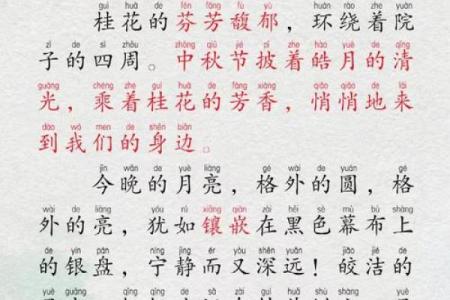 guì huā de fēn fāng fù yù huán rào zhe yuàn
桂花的芬芳馥郁，环绕着院
zǐ de sì zhōu zhōng qiū jié pī zhe hào yuè de qīng
子的四周。中秋节披着皓月的清
guāng chéng zhe guì huā de fāng xiāng qiāo qiāo de lái
光，乘着桂花的芳香，悄悄地来
dào wǒ men de shēn biān
到我们的身边。
jīn wǎn de yuè liàng gé wài de yuán gé
今晚的月亮，格外的圆，格
wài de liàng yóu rú xiāng qiàn zài hēi sè mù bù shàng
外的亮，犹如镶嵌在黑色幕布上
de yín pán níng jìng ér yòu shēn yuǎn jiǎo jié de
的银盘，宁静而又深远！皎洁的